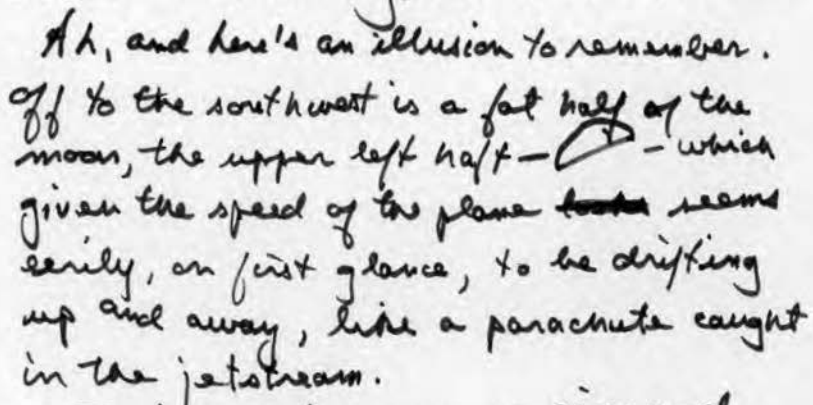 Ah, and here's an illusion to remember.
Off to the southwest is a fat half of the
moon, the upper left half — — which
given the speed of the plane seems
eerily, on first glance, to be drifting
up and away, like a parachute caught
in the jetstream.